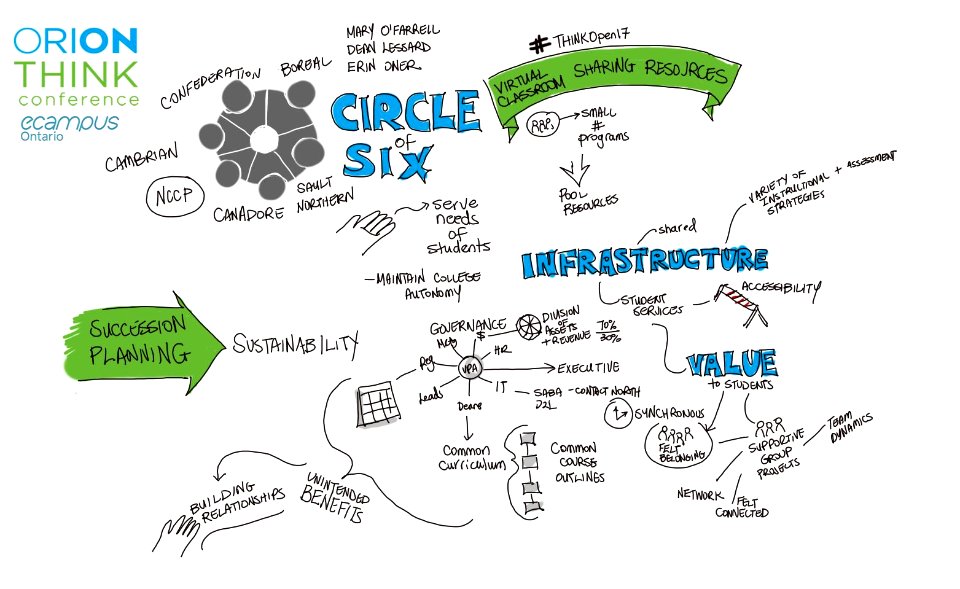 ORION
THINK
conference
ecampus
Ontario
MARY O'FARRELL
DEAN LESSARD
ERIN ONER
CONFEDERATION
BOREAL
CAMBRIAN
NCCP
CANADORE
SAULT
NORTHERN
CIRCLE
of
SIX
serve
needs
of
students
-MAINTAIN COLLEGE
AUTONOMY
#THINKOpen17
VIRTUAL
CLASSROOM
SHARING RESOURCES
SMALL
#
programs
POOL
RESOURCES
VARIETY OF
INSTRUCTIONAL + ASSESSMENT
STRATEGIES
shared
INFRASTRUCTURE
STUDENT
SERVICES
ACCESSIBILITY
SUCCESSION
PLANNING
SUSTAINABILITY
GOVERNANCE
$
DIVISION
OF
ASSETS
+ REVENUE
70%
30%
HR
Reg
VPA
EXECUTIVE
Leads
Deans
IT
SABA
D2L
-CONTACT NORTH
Common
Curriculum
COMMON
COURSE
OUTLINES
UNINTENDED
BENEFITS
BUILDING
RELATIONSHIPS
VALUE
to STUDENTS
SYNCHRONOUS
FELT
BELONGING
SUPPORTIVE
GROUP
PROJECTS
TEAM
DYNAMICS
NETWORK
FELT
CONNECTED